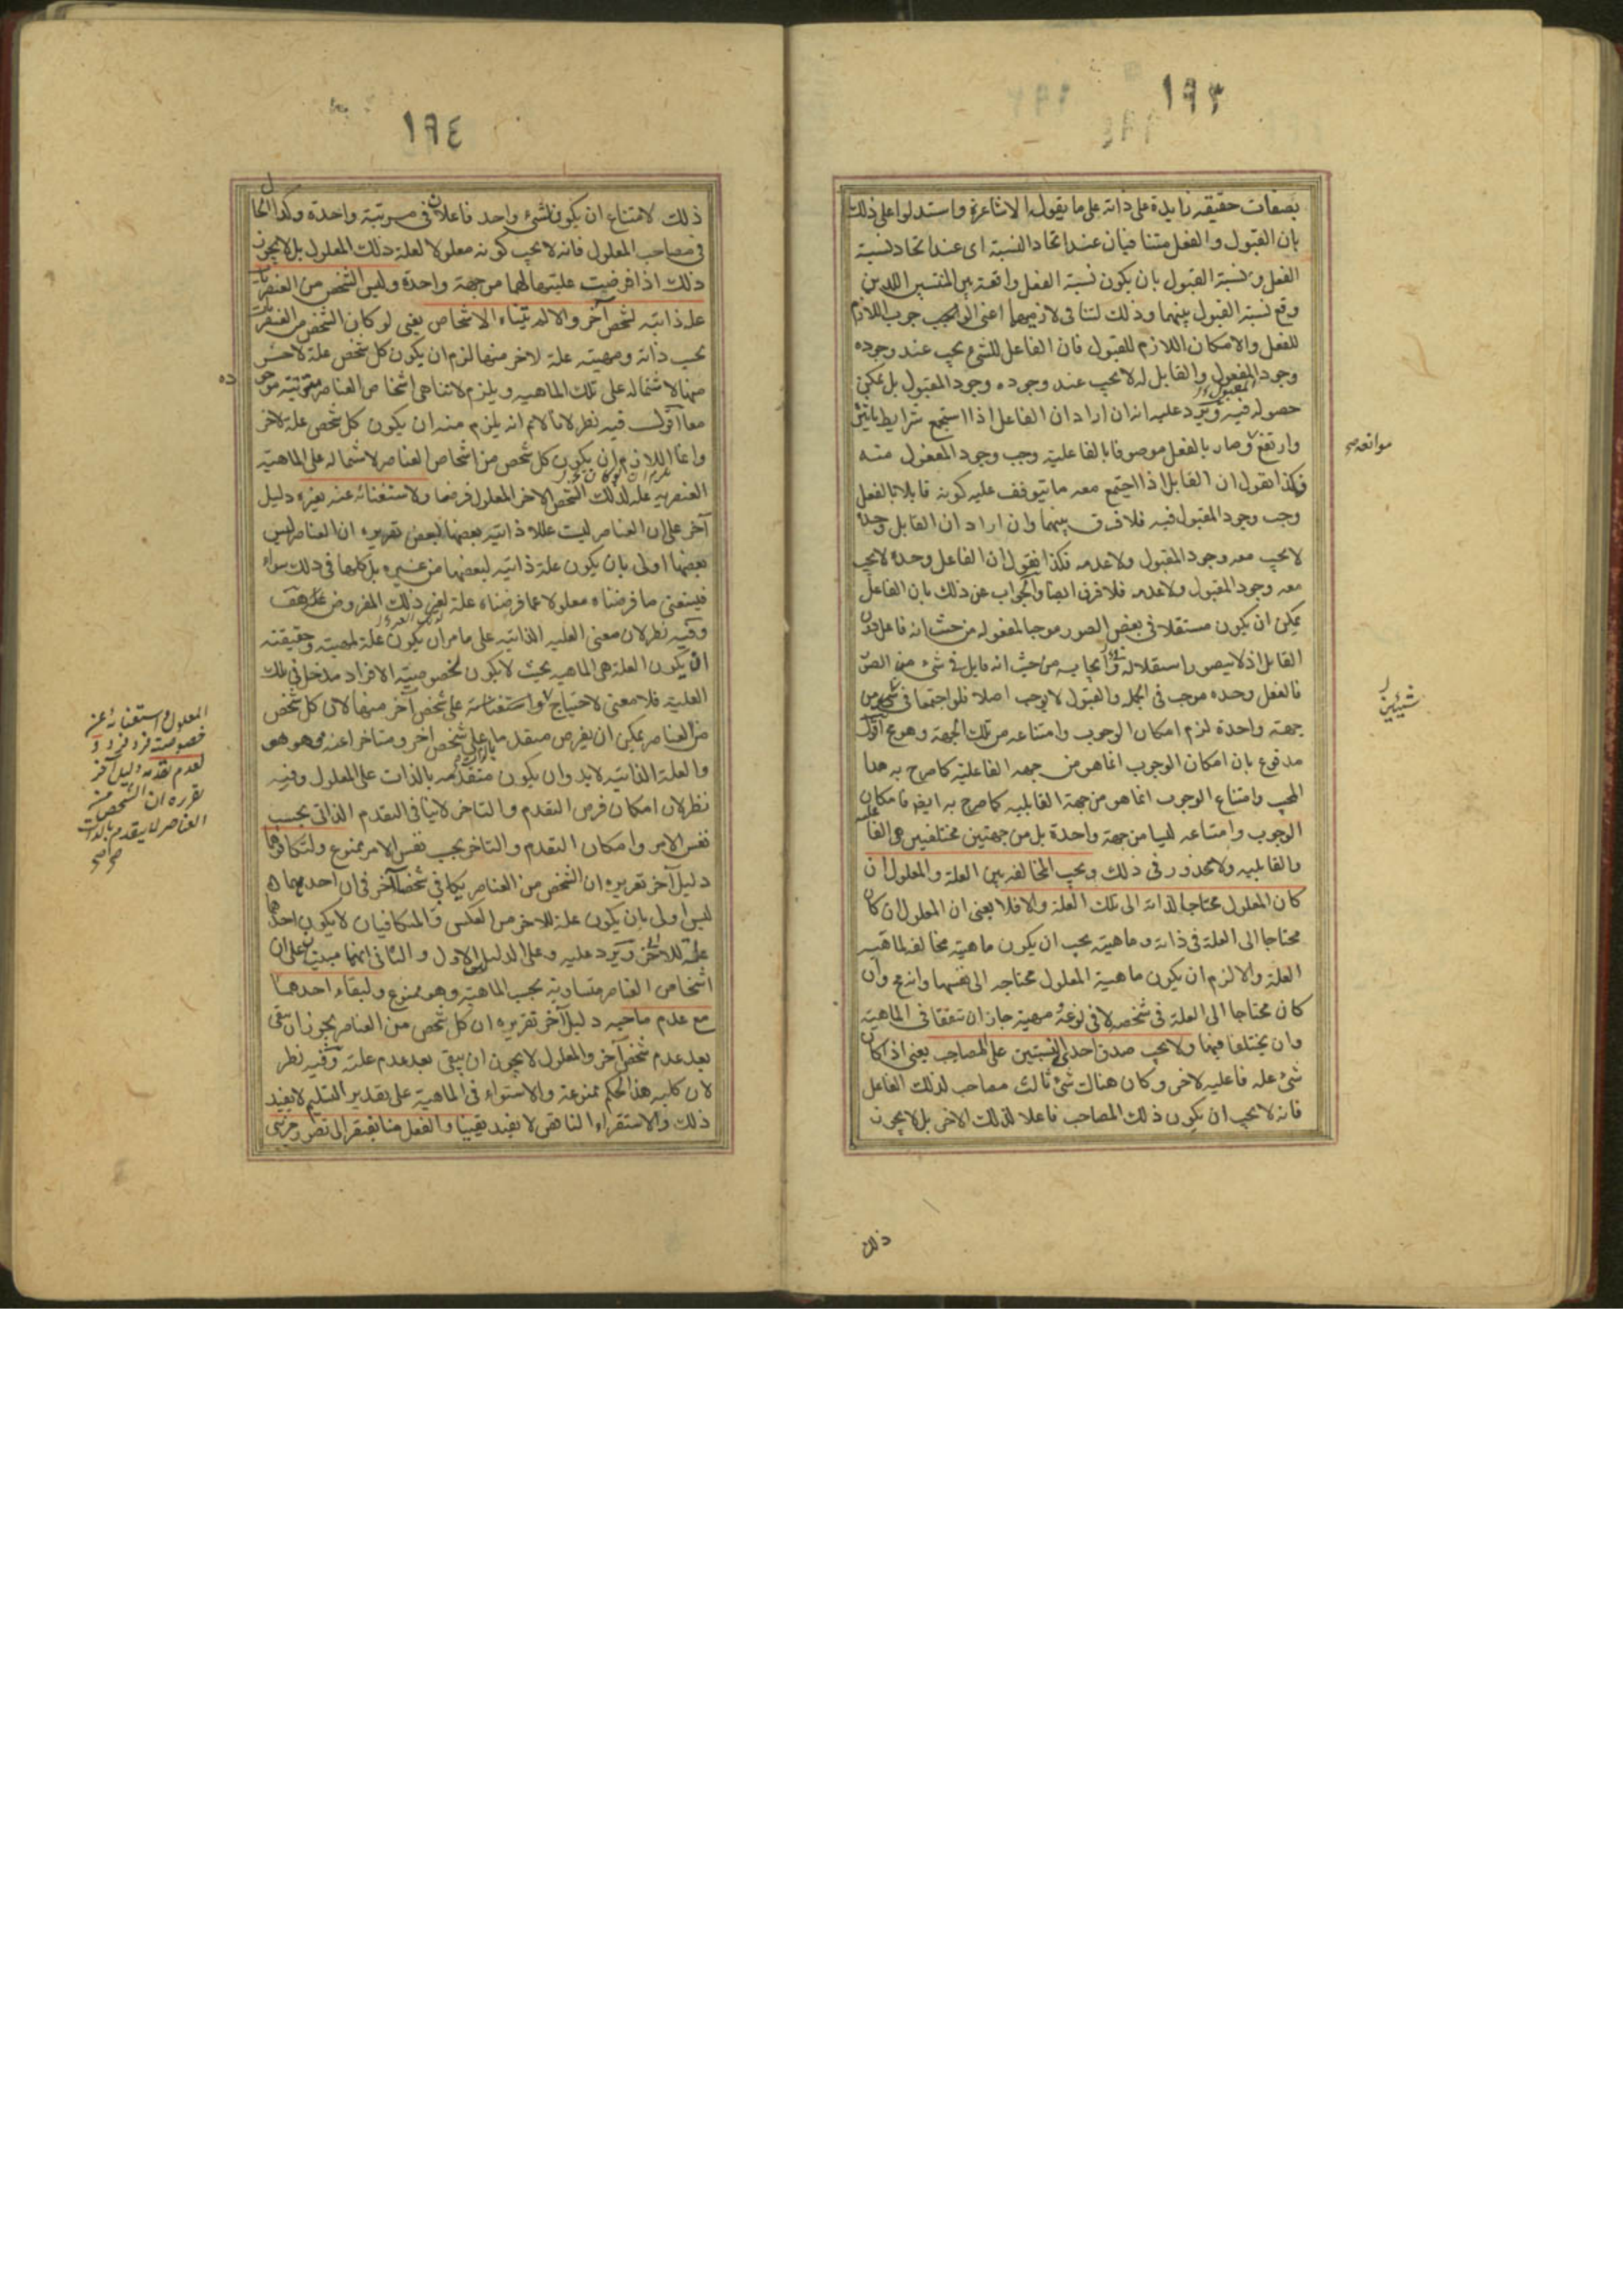 ١٩٣
بصفات حقيقية زايدة على ذاته على ما يقول الاشاعرة واستدلوا على ذلك
بان القبول والفعل متنافيان عند اتحاد النسبة اى عند اتحاد نسبة
الفعل ونسبة القبول بان يكون نسبة الفعل واقعة بين المنتسبين اللذين
وقع نسبة القبول بينهما وذلك لتنافى لازميهما اعنى الوجوب اللازم
للفعل والامكان اللازم للقبول فان الفاعل للشئ يجب عند وجوده
وجود المفعول والقابل له لا يجب عند وجوده وجود المقبول بل يمكن
حصوله فيه ويرد عليه انه ان اراد ان الفاعل اذا استجمع شرايط تاثيره
وارتفع وصار بالفعل موصوفا بالفاعلية وجب وجود المفعول منه
موانعه صح
فكذا نقول ان القابل اذا اجتمع معه ما يتوقف عليه كونه قابلا بالفعل
وجب وجود المقبول فيه فلا فرق بينهما وان اراد ان القابل وحده
لا يجب معه وجود المقبول ولا عدمه فكذا نقول ان الفاعل وحده لا يجب
معه وجود المفعول ولا عدمه فلا فرق ايضا والجواب عن ذلك بان الفاعل
يمكن ان يكون مستقلا فى بعض الصور موجبا لمفعوله من حيث انه فاعل دون
القابل اذ لا يتصور استقلاله وايجابه من حيث انه قابل فى شئ من الصور
فالفعل وحده موجب فى الجملة والقبول لا يوجب اصلا فلو اجتمعا فى شئ من
شيئين
جهة واحدة لزم امكان الوجوب وامتناعه من تلك الجهة وهو مح اقول
مدفوع بان امكان الوجوب انما هو من جهة الفاعلية كما صرح به هذا
المجيب وامتناع الوجوب انما هو من جهة القابلية كما صرح به ايضا فامكان
الوجوب وامتناعه ليسا من جهة واحدة بل من جهتين مختلفتين هى الفاعلية
والقابلية ولا محذور فى ذلك ويجب المخالفة بين العلة والمعلول ان
كان المعلول محتاجا لذاته الى تلك العلة والا فلا يعنى ان المعلول ان كان
محتاجا الى العلة فى ذاته وماهيته يجب ان يكون ماهيته مخالفة لماهية
العلة والا لزم ان يكون ماهية المعلول محتاجه الى نفسها وانه مح وان
كان محتاجا الى العلة فى شخصه لا فى نوعه مهيته جاز ان تتفقا فى الماهية
وان يختلفا فيها ولا يجب صدق احدى النسبتين على المصاحب يعنى اذا كان
شئ علة فاعلية لاخر وكان هناك شئ ثالث مصاحب لذلك الفاعل
فانه لا يجب ان يكون ذلك المصاحب فاعلا لذلك الاخر بل لا يجوز
ذلك
١٩٤
ذلك لامتناع ان يكون لشئ واحد فاعلان فى مرتبة واحدة وكذا الحال
فى مصاحب المعلول فانه لا يجب كونه معلولا لعلة ذلك المعلول بل لا يجوز
ذلك اذا فرضت عليتها لهما من جهة واحدة وليس الشخص من العنصريات
علة ذاتية لشخص آخر والا لم تتناه الاشخاص يعنى لو كان الشخص من العنصريات
بحسب ذاته ومهيته علة لاخر منها لزم ان يكون كل شخص علة لاخر
منها لاشتماله على تلك الماهية ويلزم لا تناهى اشخاص العناصر مترتبة موجو
ده
معا اقول فيه نظر لانا لانم انه يلزم منه ان يكون كل شخص علة لاخر
وانما اللازم ان يكون كل شخص من اشخاص العناصر لاشتماله على الماهية
العنصرية علة لذلك الشخص الاخر المعلول فرضا ولاستغنائه عنه بغيره دليل
آخر على ان العناصر ليست عللا ذاتية بعضها لبعض تقريره ان العناصر ليس
بعضها اولى بان يكون علة ذاتية لبعضها من غيره بل كلها فى ذلك سواء
فيستغنى ما فرضناه معلولا عما فرضناه علة لغير ذلك المفروض علة هف
وفيه نظر لان معنى العلية الذاتية على ما مر ان يكون علة لمهيته وحقيقته
ان يكون العلة هى الماهية بحيث لا يكون لخصوصية الافراد مدخل فى تلك
العلية فلا معنى لاحتياج واستغنائه على شخص آخر منها لان كل شخص
المعلول واستغنائه عن
خصوصية فرد فرد و
لعدم تقدمه دليل آخر
تقريره ان الشخص من
العناصر لا يتقدم بالذات
صح صح
من العناصر يمكن ان يفرض متقدما على شخص اخر ومتاخرا عنه وهو هو
والعلة الذاتية لا بد وان يكون متقدمه بالذات على المعلول وفيه
نظر لان امكان فرض التقدم والتاخر لا ينافى التقدم الذاتى بحسب
نفس الامر وامكان التقدم والتاخر بحسب نفس الامر ممنوع ولتكافوهما
دليل آخر تقريره ان الشخص من العناصر يكافى شخصا آخر فى ان احدهما
ليس اولى بان يكون علة للاخر من العكس والمتكافيان لا يكون احدهما
علة للاخر ويرد عليه وعلى الدليل الاول والثانى انهما مبنيان على ان
اشخاص العناصر متساوية بحسب الماهية وهو ممنوع ولبقاء احدهما
مع عدم صاحبه دليل آخر تقريره ان كل شخص من العناصر يجوز ان يبقى
بعد عدم شخص آخر والمعلول لا يجوز ان يبقى بعد عدم علته وفيه نظر
لان كلية هذا الحكم ممنوعة والاستواء فى الماهية على تقدير التسليم لا يفيد
ذلك والاستقراء الناقص لا يفيد يقينا والفعل منا يفتقر الى تصور جزئى